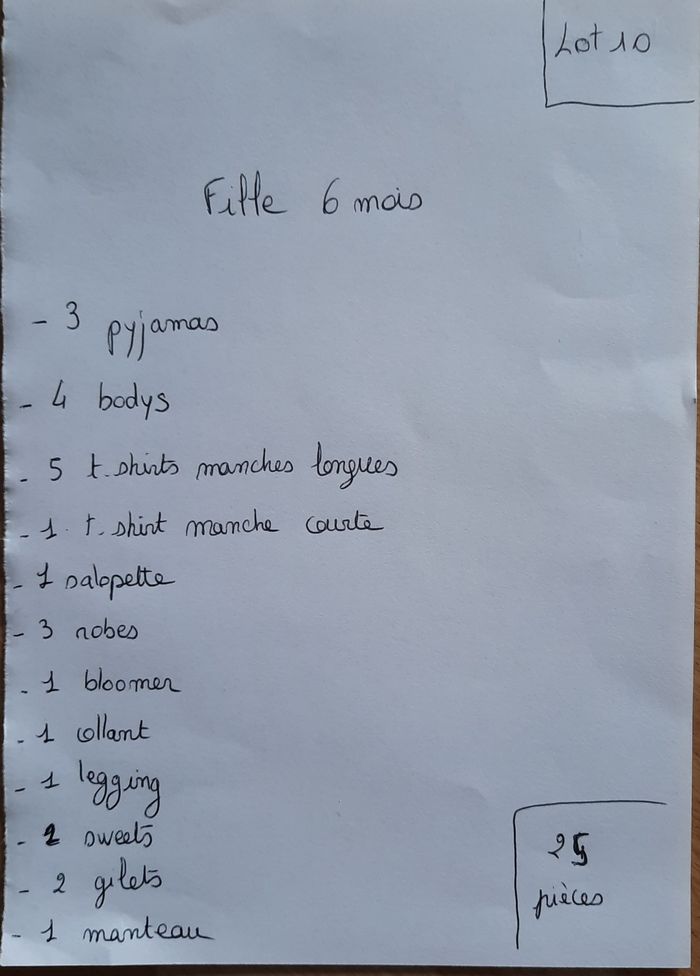 Lot 10
Fille 6 mois
- 3 pyjamas
- 4 bodys
- 5 t.shirts manches longues
- 1 t.shirt manche courte
- 1 salopette
- 3 robes
- 1 bloomer
- 1 collant
- 1 legging
- 2 sweets
- 2 gilets
- 1 manteau
25
pièces